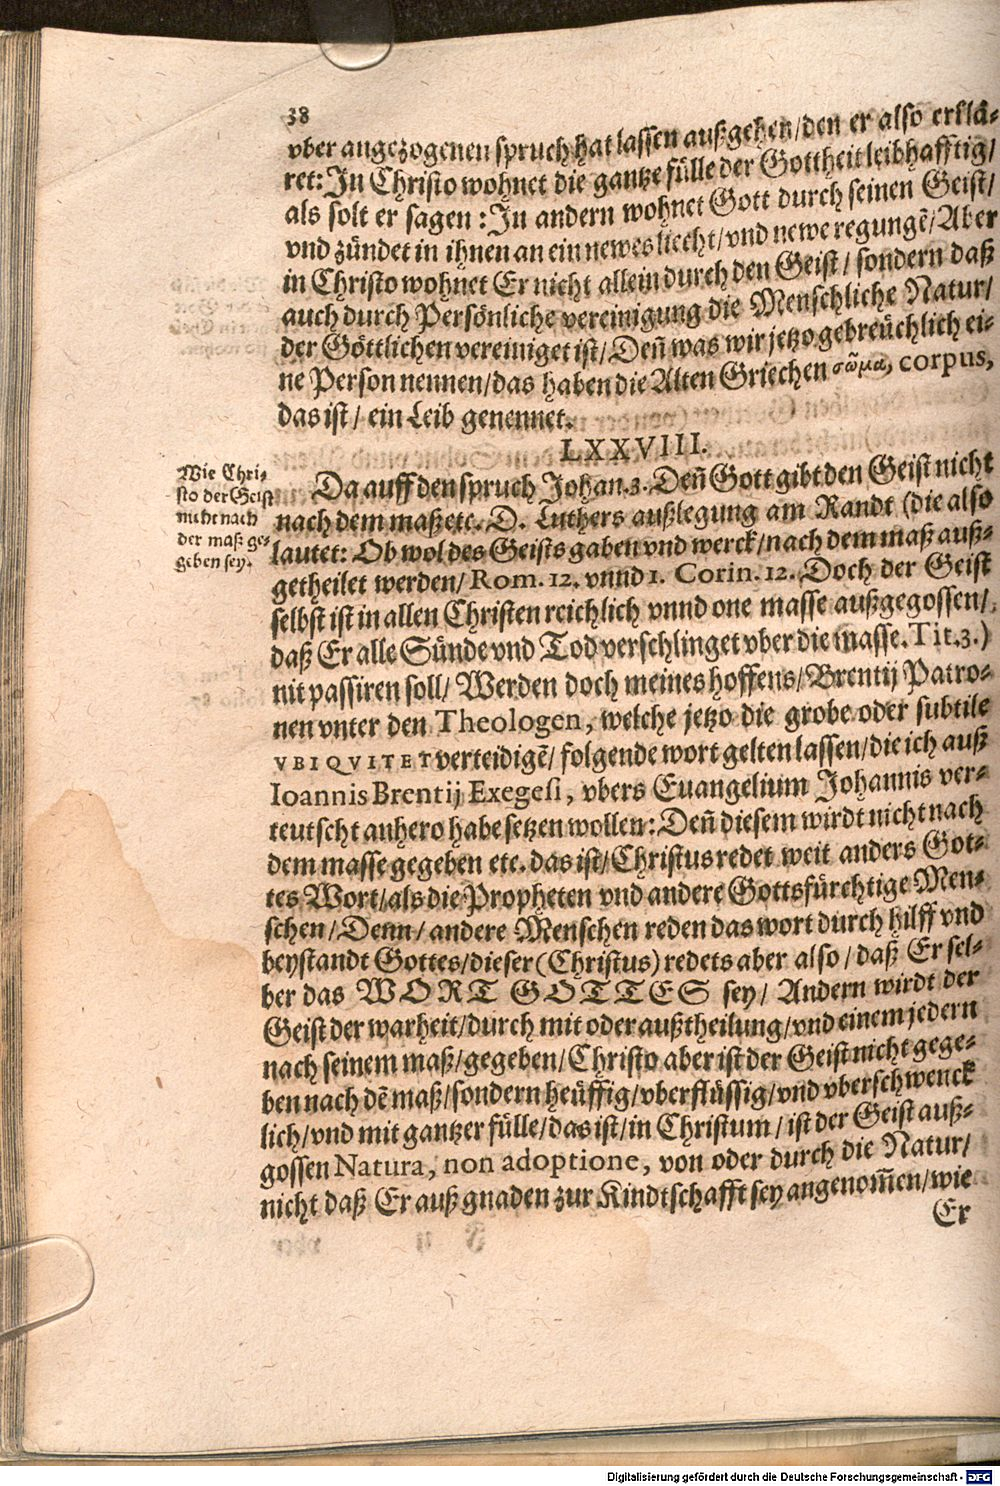 38
vber angezogenen spruch hat lassen außgehen/den er also erklä-
ret: In Christo wohnet die gantze fülle der Gottheit leibhafftig/
als solt er sagen: In andern wohnet Gott durch seinen Geist/
vnd zündet in ihnen an ein newes liecht/vnd newe regungẽ/Aber
in Christo wohnet Er nicht allein durch den Geist/ sondern daß
auch durch Persönliche vereinigung die Menschliche Natur/
der Göttlichen vereiniget ist/ Deñ was wir jetzo gebreüchlich ei-
ne Person nennen/das haben die Alten Griechen σῶμα, corpus,
das ist/ ein Leib genennet.
LXXVIII.
Wie Chri-
sto der Geist
nicht nach
der maß ge-
geben sey.
Da auff den spruch Johan.3. Deñ Gott gibt den Geist nicht
nach dem maß etc. D. Luthers außlegung am Randt (die also
lautet: Ob wol des Geists gaben vnd werck/nach dem maß auß-
getheilet werden/ Rom. 12. vnnd 1. Corin. 12. Doch der Geist
selbst ist in allen Christen reichlich vnnd one masse außgegossen/
daß Er alle Sünde vnd Tod verschlinget vber die masse. Tit.3.)
nit passiren soll/ Werden doch meines hoffens/ Brentij Patro-
nen vnter den Theologen, welche jetzo die grobe oder subtile
VBIQVITET verteidigẽ/ folgende wort gelten lassen/die ich auß
Ioannis Brentij Exegesi, vbers Euangelium Johannis ver-
teutscht anhero habe setzen wollen: Deñ diesem wirdt nicht nach
dem masse gegeben etc. das ist/ Christus redet weit anders Got-
tes Wort/als die Propheten vnd andere Gottsfürchtige Men-
schen/ Denn/ andere Menschen reden das wort durch hilff vnd
beystandt Gottes/dieser (Christus) redets aber also/ daß Er sel-
ber das WORT GOTTES sey/ Andern wirdt der
Geist der warheit/durch mit oder außtheilung/vnd einem jedern
nach seinem maß/gegeben/ Christo aber ist der Geist nicht gege-
ben nach dẽ maß/sondern heüffig/vberflüssig/vnd vberschwenck
lich/vnd mit gantzer fülle/das ist/in Christum/ ist der Geist auß-
gossen Natura, non adoptione, von oder durch die Natur/
nicht daß Er auß gnaden zur Kindtschafft sey angenom̃en/wie
Er
Digitalisierung gefördert durch die Deutsche Forschungsgemeinschaft - DFG